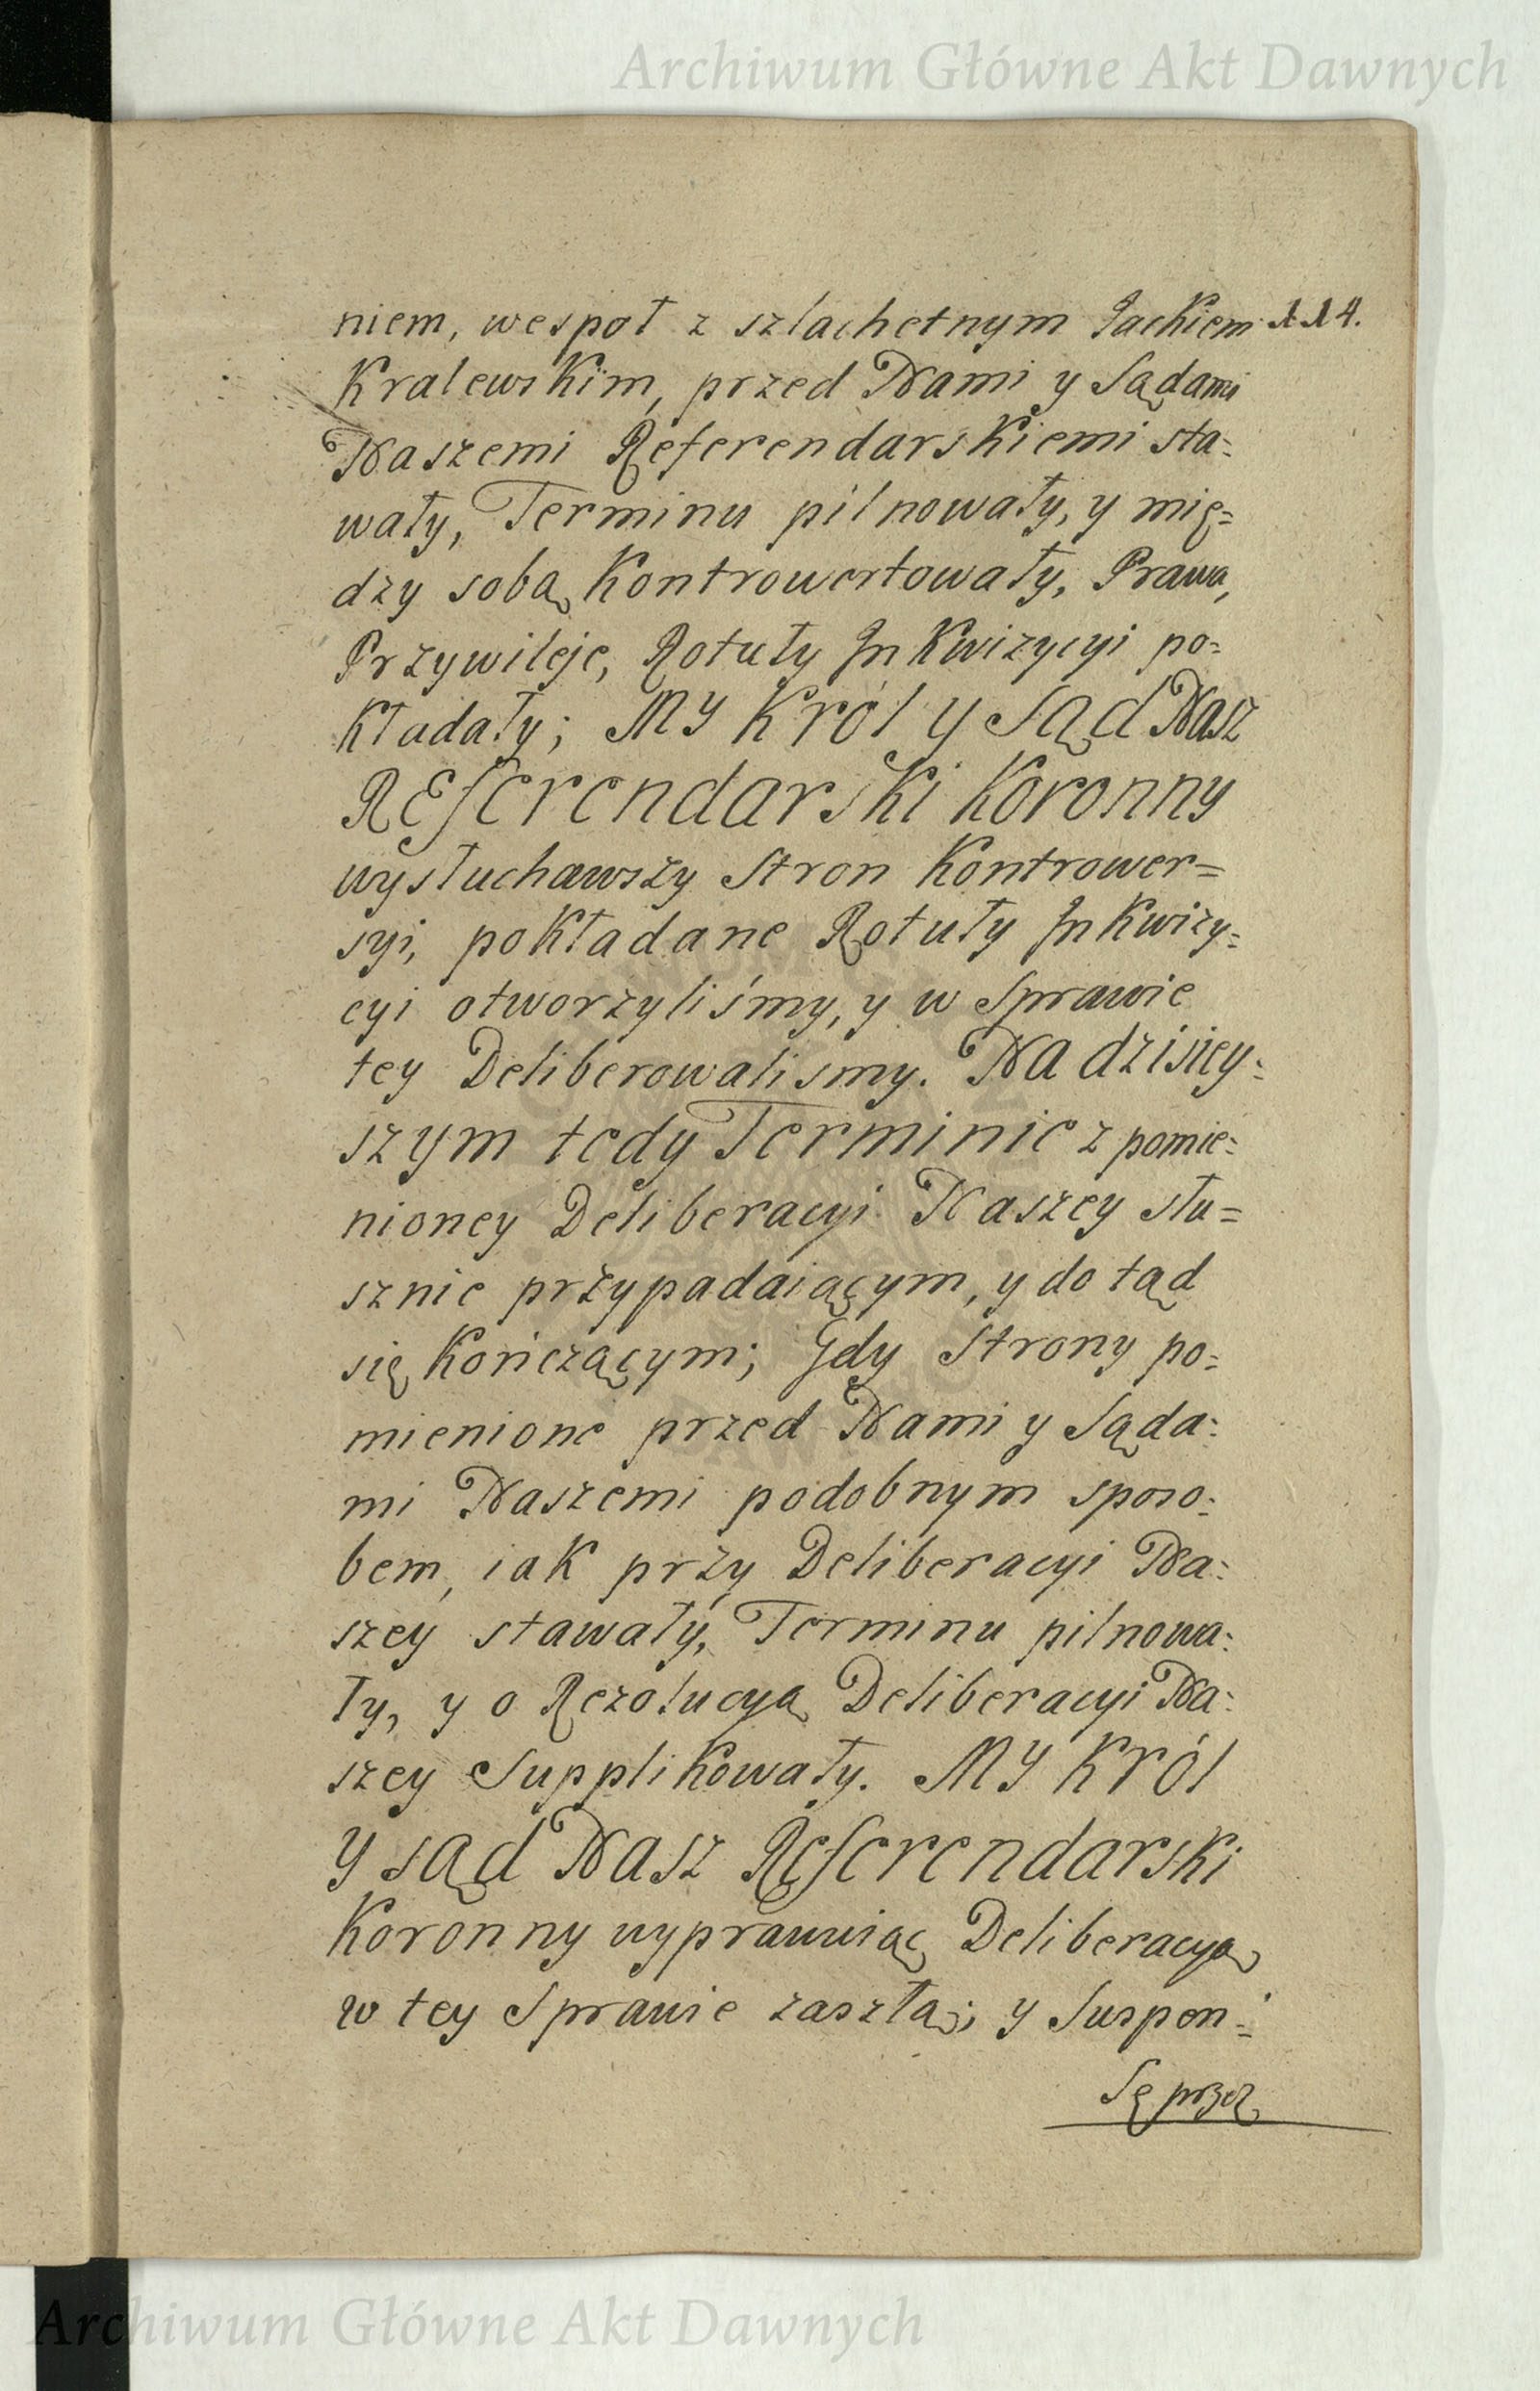 Archiwum Główne Akt Dawnych
niem, wespoł z szlachetnym Jackiem 114.
Kralewskim, przed Nami y Sądami
Naszemi Referendarskiemi sta=
wały, Terminu pilnowały, y mię=
dzy sobą Kontrowertowały, Prawa,
Przywileje, Rotuły InKwizycyi po=
Kładały; MY Król y Sąd Nasz
REferendarski Koronny
wysłuchawszy Stron Kontrower=
syi, poKładane Rotuły InKwizy=
cyi otworzyliśmy, y w Sprawie
tey Deliberowalismy. Na dzisiey=
szym tedy Terminie z pomie=
nioney Deliberacyi Naszey słu=
sznie przypadaiącym, y do tąd
się Kończącym; Gdy Strony po=
mienione przed Nami y Sąda=
mi Naszemi podobnym sposo=
bem, iaK przy Deliberacyi Na=
szey stawały, Terminu pilnowa=
ły, y o Rezolucyą Deliberacyi Na=
szey SuppliKowały. MY Król
y sąd Nasz Referendarski
Koronny wyprawuiąc Deliberacyą
w tey Sprawie zaszłą; y Suspen=
Sę przez
Archiwum Główne Akt Dawnych